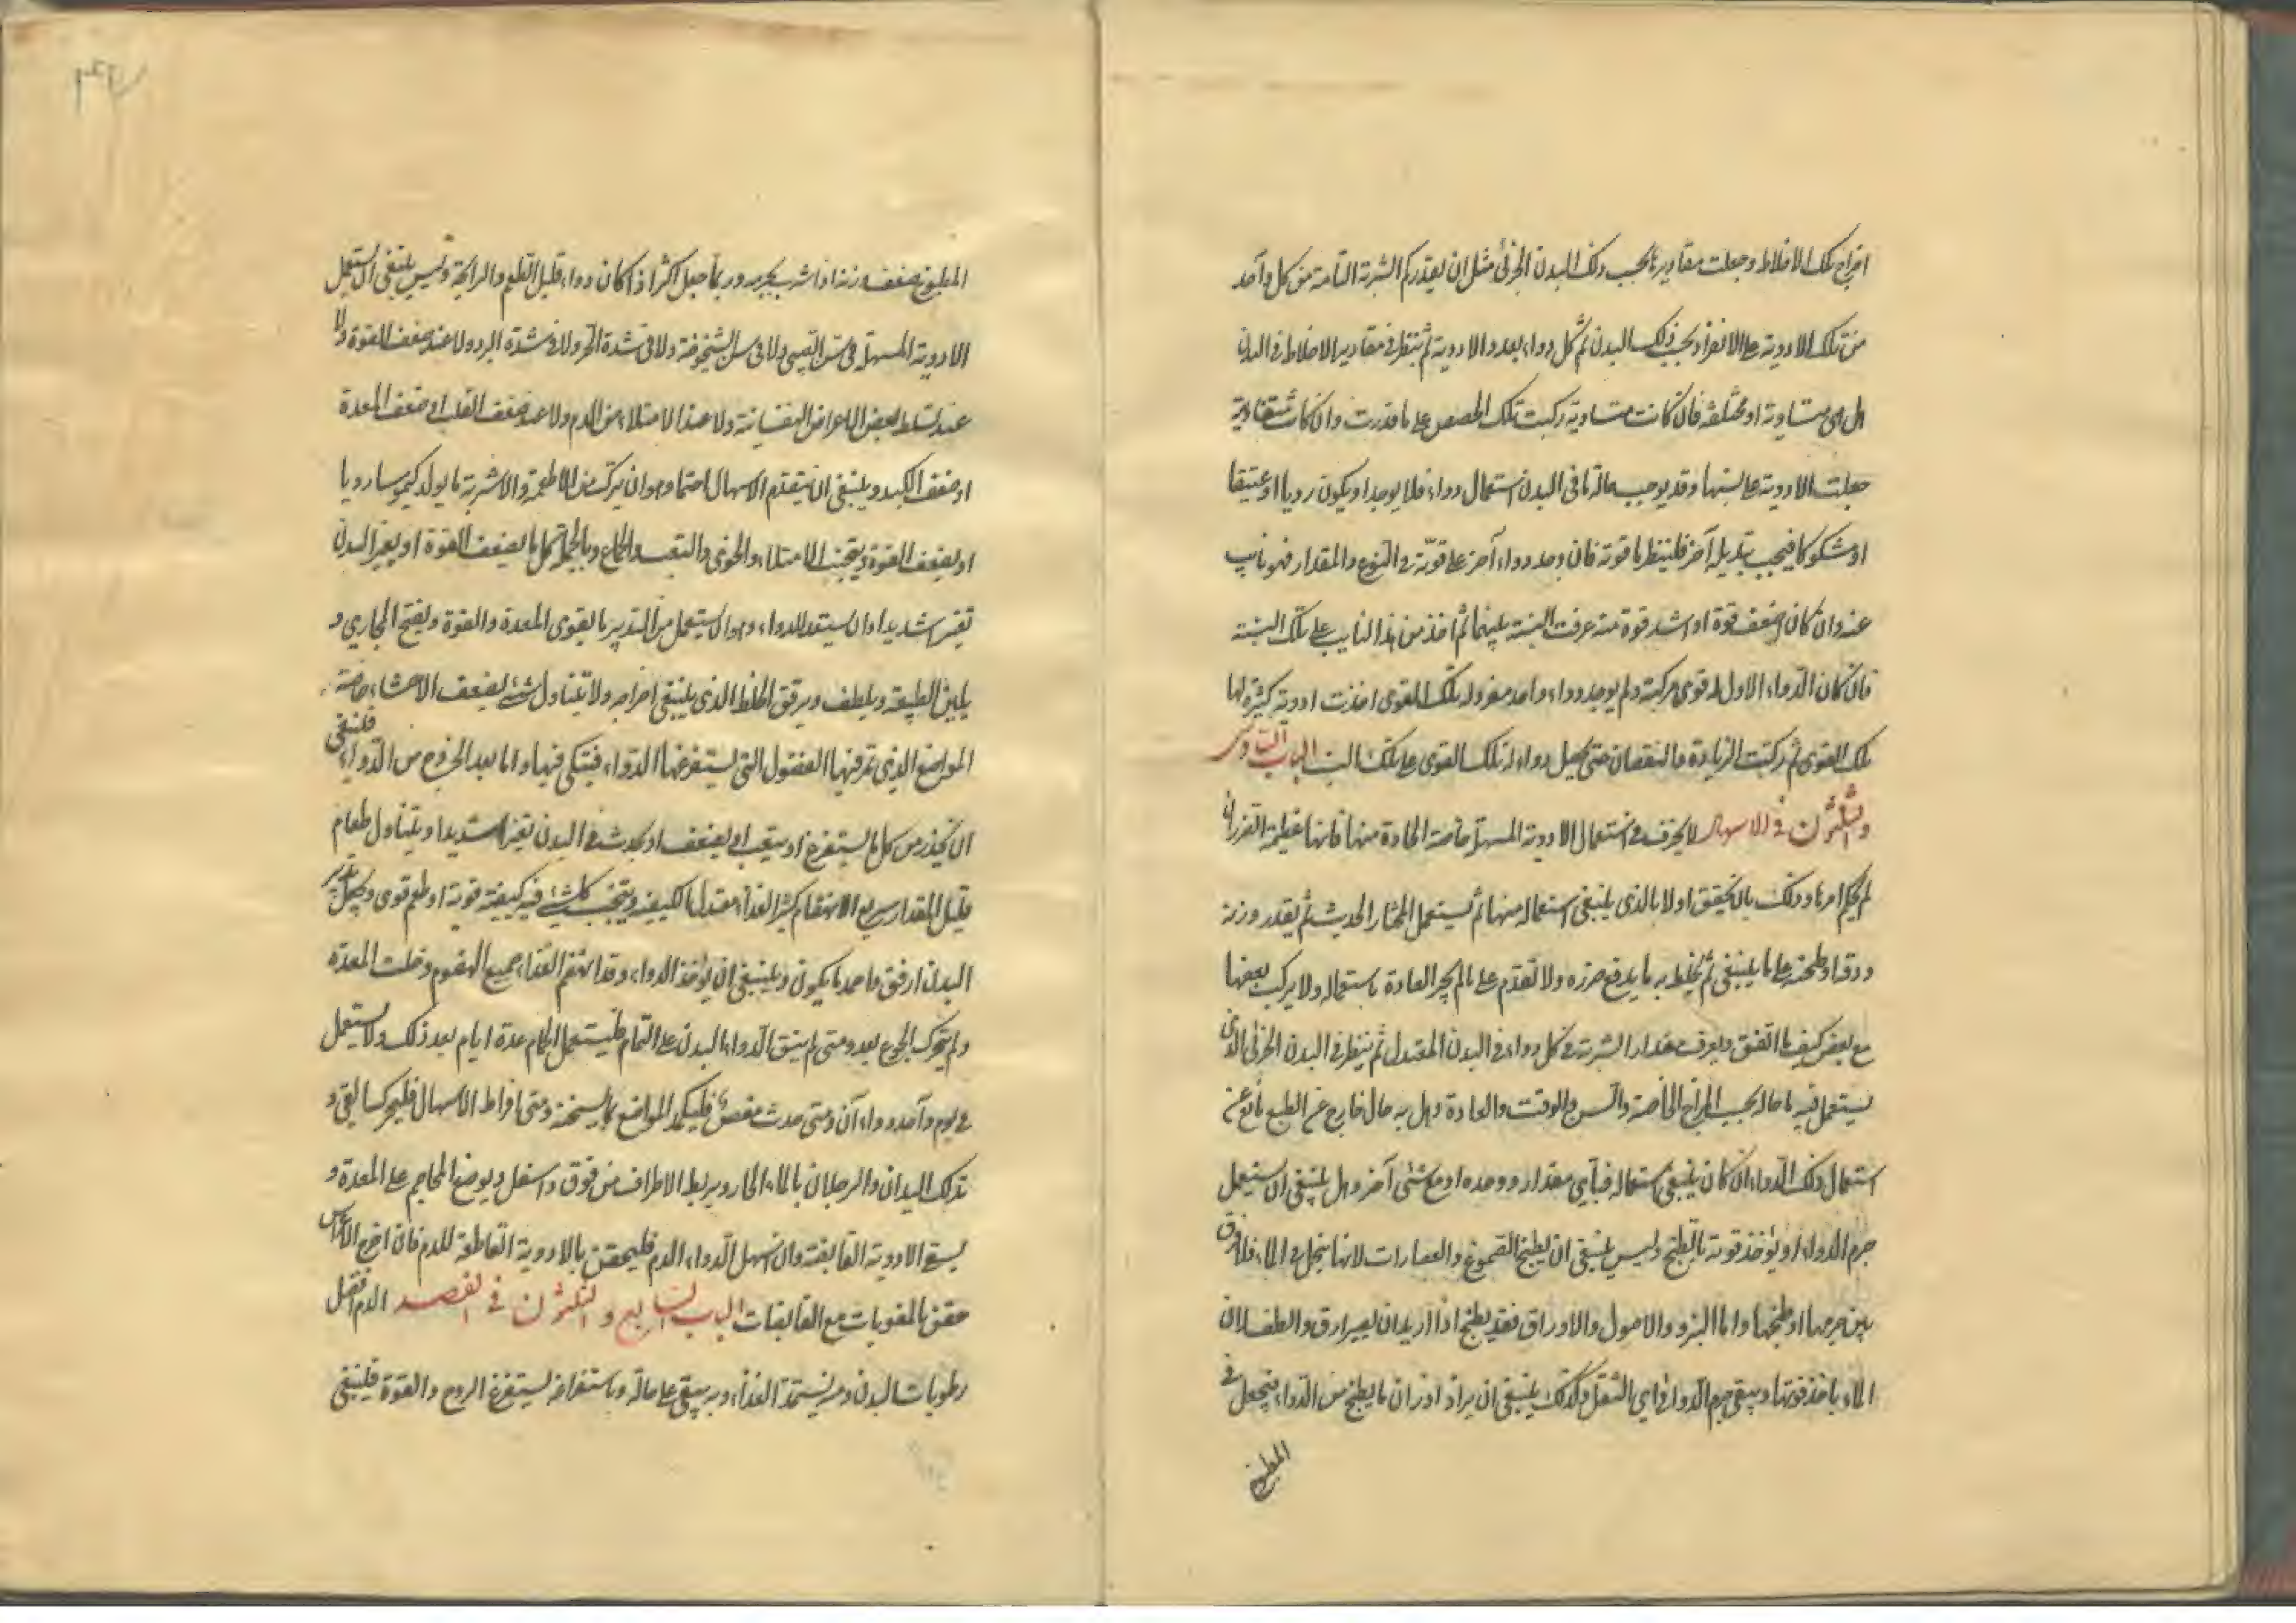 اخراج تلك الاخلاط وجعلت مقاديرها بحسب ذلك البدن الجزئى مثل ان يقدركم الشربة التامة من كل واحد
من تلك الادوية على الانفراد بحسب ذلك البدن ثم كل دواء بعدد الادوية ثم ينظر فى مقادير الاخلاط فى البدن
هل هى متساوية او مختلفة فان كانت متساوية ركبت تلك الحصص على ما قدرت وان كانت متفاوتة
جعلت الادوية على نسبتها وقد يوجب حالة ما فى البدن استعمال دواء فلا يوجد او يكون رديا او عتيقا
او مشكوكا فيجب تبديله آخر فلينظر ما قوته فان وجد دواء آخر على قوته فى النوع والمقدار فهو نايب
عنه وان كان اضعف قوة او اشد قوة منه عرفت النسبة بينهما ثم اخذ من هذا النايب على تلك النسبة
فان كان الدواء الاول له قوى مركبة ولم يوجد دواء واحد مفرد له تلك القوى اخذت ادوية كثيرة لها
تلك القوى ثم ركبت الزيادة والنقصان حتى يحصل دواء له تلك القوى على تلك النسب الباب السادس
والثلثون فى الاسهال لا يحرف فى استعمال الادوية المسهلة خاصة الحادة منها فانها عظيمة الضرر ان
لم يحكم امرها وذلك بان يحقق اولا بالذى ينبغى استعماله منها ثم يستعمل المختار الحديث ثم يقدر وزنه
ودقه او طحنه على ما ينبغى ثم يخلط به ما يدفع ضرره ولا تقدم على ما لم يجر العادة باستعماله ولا يركب بعضها
مع بعض كيف ما اتفق ويعرف مقدار الشربة فى كل دواء فى البدن المعتدل ثم ينظر فى البدن الجزئى الذى
يستعمل فيه ما حاله بحسب المزاج الخاصة والسن والوقت والعادة وهل به حال خارج عن الطبع مانع عن
استعمال ذلك الدواء ان كان ينبغى استعماله فباى مقدار ووحده او مع شئ آخر وهل ينبغى ان يستعمل
جرم الدواء او يؤخذ قوته بالطبخ وليس ينبغى ان يطبخ الصموغ والعصارات لانها ينحل فى الماء فلا فرق
بين جرمها او طبخها واما البزور والاصول والاوراق فقد يطبخ اذا اريد ان يصير ارق والطف لان
الماء ياخذ قوتها ويبقى جرم الدواء فى اى الثقل وكذلك ينبغى ان يزاد اوزان ما يطبخ من الدواء فيجعل فى
المطبوخ
المطبوخ ضعف وزنه اذا شرب بجرمه وربما جعل اكثر اذا كان دواء قليل الطعم والرايحة وليس ينبغى ان يستعمل
الادوية المسهلة فى سن الصبى ولا فى سن الشيخوخة ولا فى شدة الحر ولا فى شدة البرد ولا عند ضعف القوة ولا
عند تسلط بعض الاعراض النفسانية ولا عند الامتلاء من الدم ولا عند ضعف القلب او ضعف المعدة
او ضعف الكبد وينبغى ان يتقدم الاسهال احتماء وهو ان يترك من الاطعمة والاشربة ما يولد كيموسا رديا
او يضعف القوة ويتجنب الامتلاء والخوى والتعب والجماع وبالجملة كل ما يضعف القوة او يغير البدن
تغيرا شديدا وان يستعد للدواء وهو ان يستعمل من التدبير ما يقوى المعدة والقوة ويفتح المجارى و
يلين الطبيعة ويلطف ويرقق الخلط الذى ينبغى اخراجه ولا يتناول شئ يضعف الاحشاء خاصة
المواضع الذى تمر فيها الفضول التى يستفرغها الدواء فيتكى فيها واما بعد الخروج من الدواء فلينبغى
ان يحذر من كل ما يستفرغ او يتعب او يضعف او يحدث فى البدن تغيرا شديدا ويتناول طعام
قليل المقدار سريع الانهضام كثير الغذاء معتدل الكيفية ويتجنب كل شئ فيه كيفية قوية او طعم قوى و تدبير
البدن ارفق ما صد ما يكون وينبغى ان يؤخذ الدواء وقد انهضم الغذاء جميع الهضوم وخلت المعدة
ولم يتحرك الجوع بعد ومتى لم ينق الدواء البدن على التمام فليستعمل الحمام عدة ايام بعد ذلك ولا يستعمل
فى يوم واحد دواءان ومتى حدث مغص فليكمد المواضع بما يسخنه ومتى افراط الاسهال فليحرك القى و
تدلك اليدان والرجلان بالماء الحار ويربط الاطراف من فوق واسفل ويوضع المحاجم على المعدة و
يسقى الادوية القابضة وان اسهل الدواء الدم فليحقن بالادوية القاطعة للدم فان اخرج الامراس
حقن بالمغريات مع القابضات الباب السابع والثلثون فى الفصد الدم افضل
رطوبات البدن ومنه يستمد الغذاء وبه يبقى على حاله وباستفراغه يستفرغ الروح والقوة فلينبغى